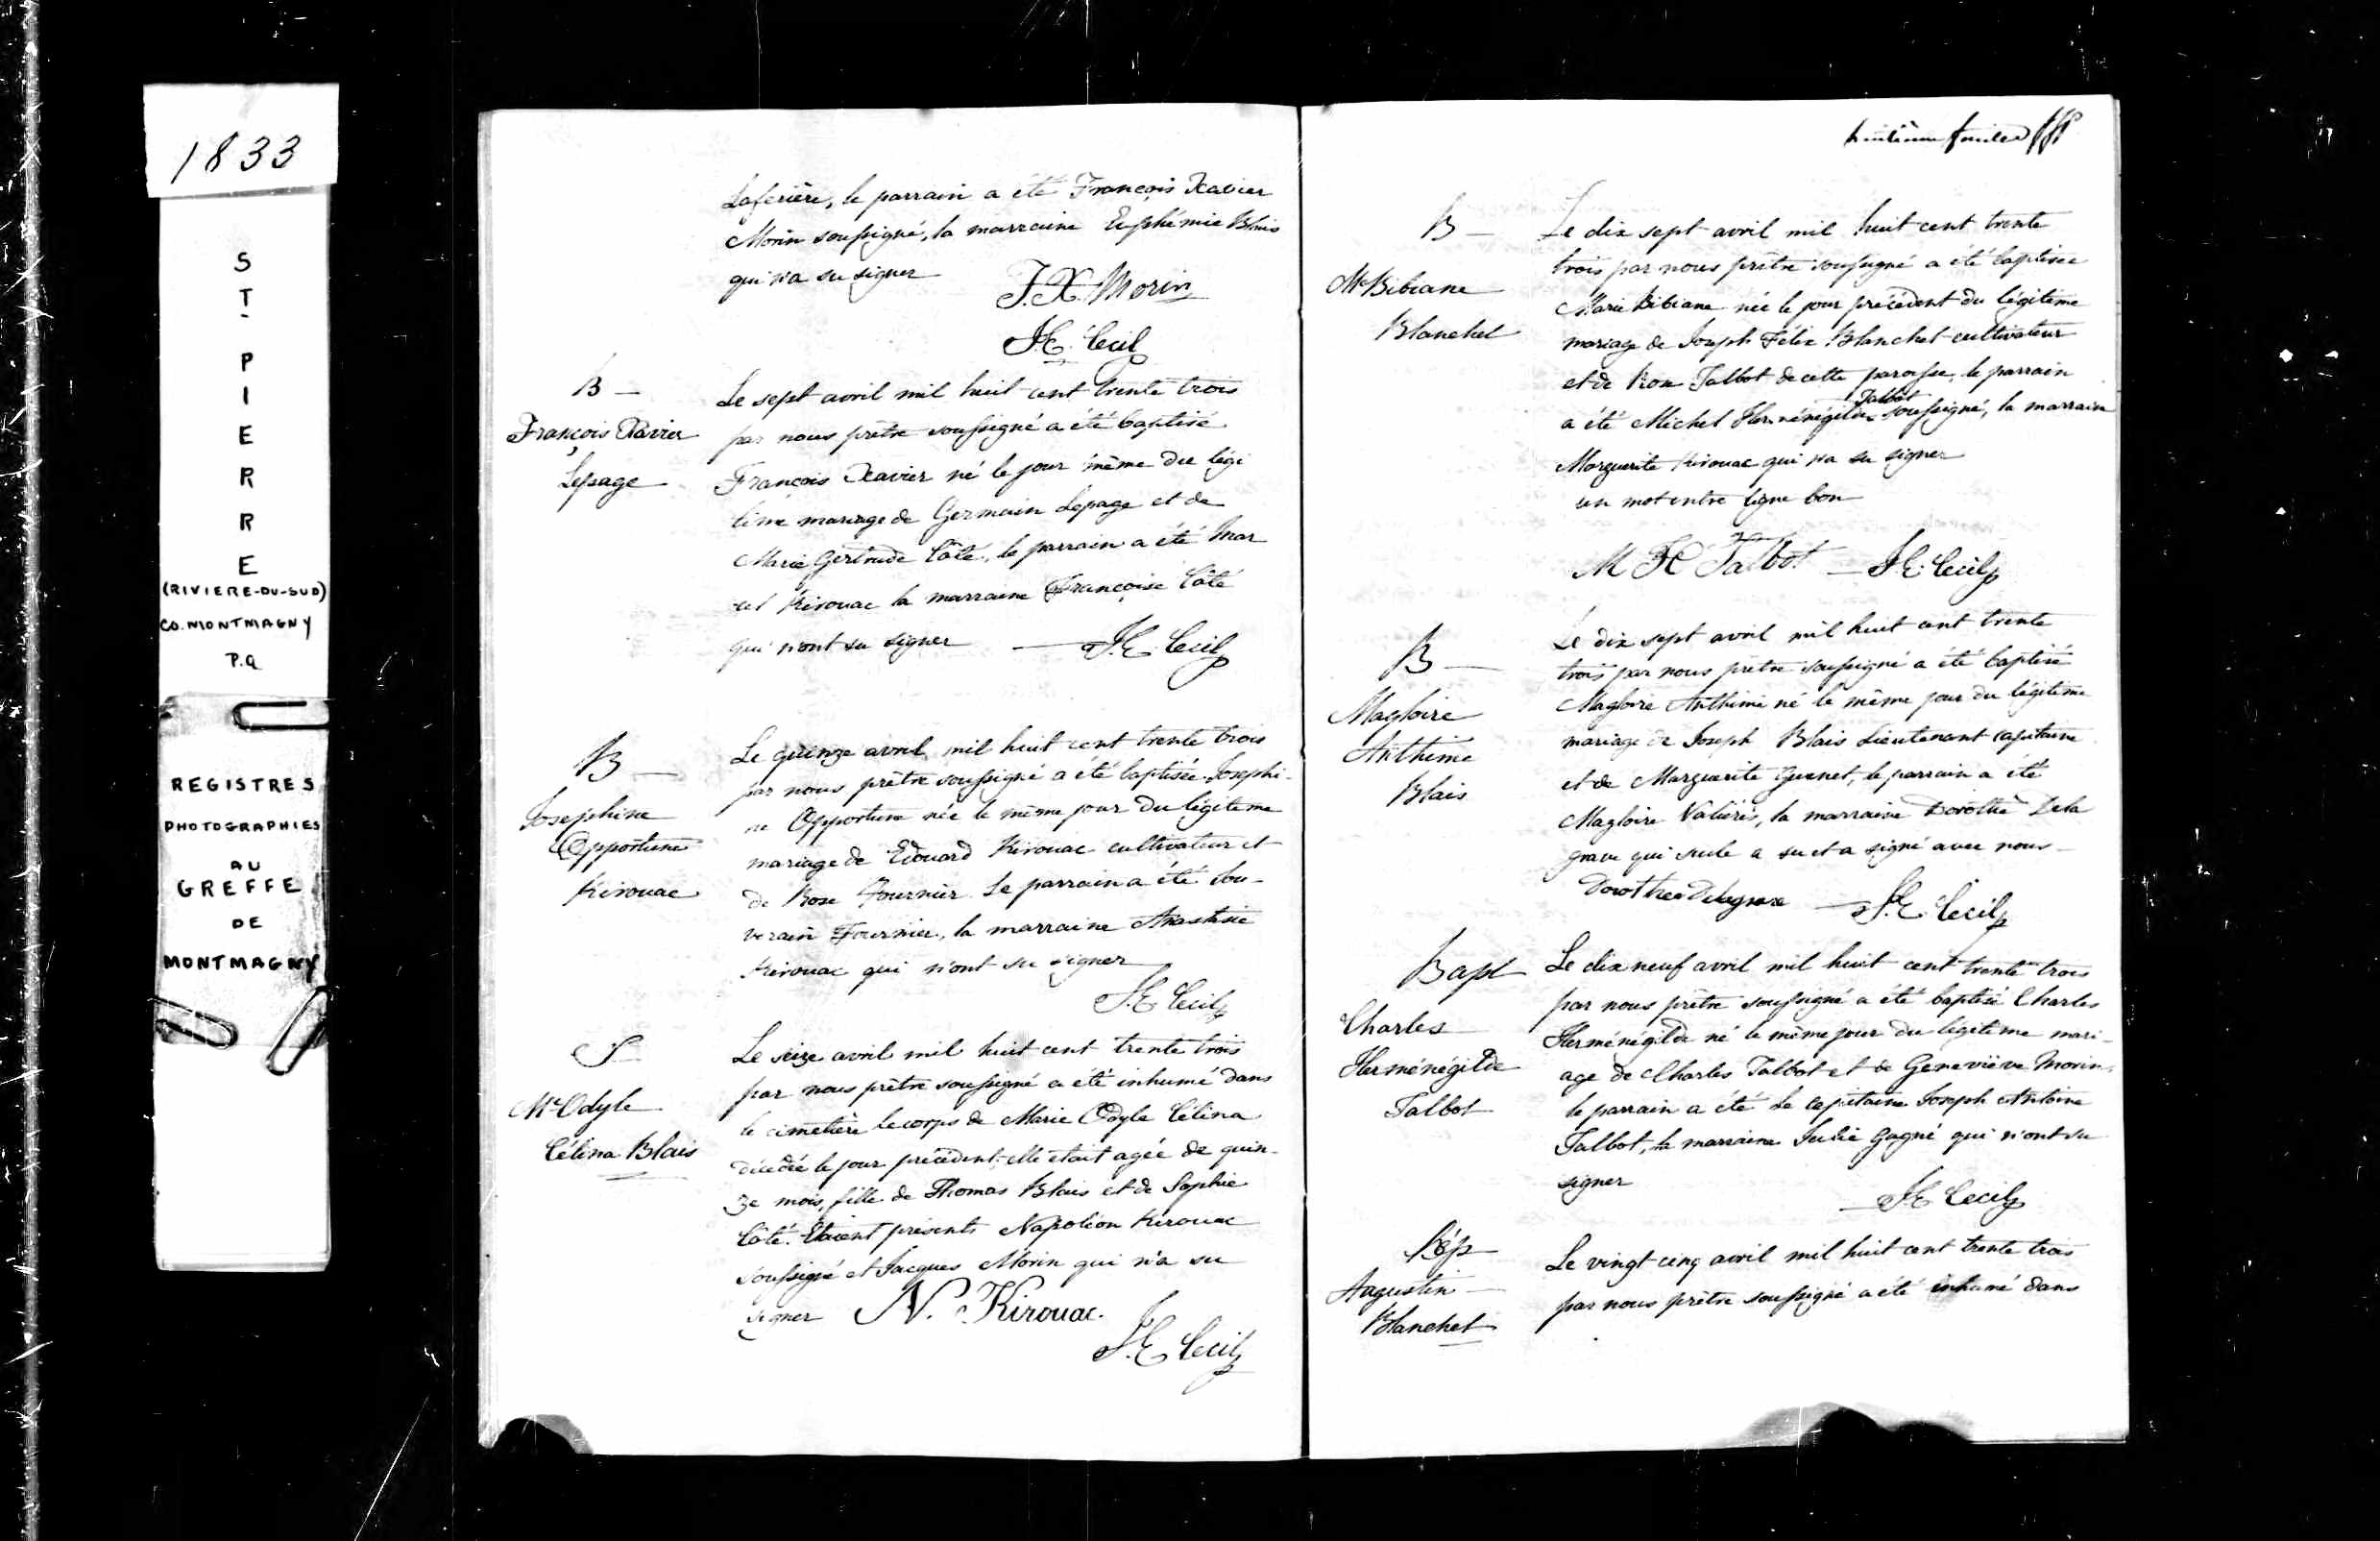 1833
ST
PIERRE
(RIVIERE-DU-SUD)
CO. MONTMAGNY
P.Q
REGISTRES
PHOTOGRAPHIES
AU
GREFFE
DE
MONTMAGNY
Laferière, le parrain a été François Xavier
Morin soussigné, la marraine Euphémie Blais
qui n'a su signer
F. X. Morin
J.E. Cecil
B —
François Xavier
Lepage
Le sept avril mil huit cent trente trois
par nous prêtre soussigné a été baptisé
François Xavier né le jour même du légi
time mariage de Germain Lepage et de
Marie Gertrude Côté, le parrain a été Mar
cel Kirouac la marraine Françoise Côté
qui n'ont su signer — J.E. Cecil
B —
Josephine
Opportune
Kirouac
Le quinze avril mil huit cent trente trois
par nous prêtre soussigné a été baptisée Josephi-
ne Opportune née le même jour du légitime
mariage de Edouard Kirouac cultivateur et
de Rose Fournier Le parrain a été Sou-
verain Fournier, la marraine Anastasie
Kirouac qui n'ont su signer
J.E. Cecil
S
Mie Odyle
Célina Blais
Le seize avril mil huit cent trente trois
par nous prêtre soussigné a été inhumé dans
le cimetière le corps de Marie Odyle Célina
décédée le jour précédent, elle était agée de quin-
ze mois, fille de Thomas Blais et de Sophie
Côté. Etaient présents Napoléon Kirouac
soussigné et Jacques Morin qui n'a su
signer N. Kirouac.
J.E. Cecil
huitième feuillet
B —
Mie Bibiane
Blanchet
Le dix sept avril mil huit cent trente
trois par nous prêtre soussigné a été baptisée
Marie Bibiane née le jour précédent du légitime
mariage de Joseph Félix Blanchet cultivateur
et de Rose Talbot de cette paroisse, le parrain
Talbot
a été Michel Herménégilde soussigné, la marraine
Marguerite Kirouac qui n'a su signer
un mot entre ligne bon
M H Talbot — J.E. Cecil
B —
Magloire
Anthime
Blais
Le dix sept avril mil huit cent trente
trois par nous prêtre soussigné a été baptisé
Magloire Anthime né le même jour du légitime
mariage de Joseph Blais Lieutenant capitaine
et de Marguerite Guenet, le parrain a été
Magloire Valières, la marraine Dorothée Dela
grave qui seule a su et a signé avec nous —
Dorothee Delagrave — J.E. Cecil
Bapt
Charles
Herménégilde
Talbot
Le dix neuf avril mil huit cent trente trois
par nous prêtre soussigné a été baptisé Charles
Herménégilde né le même jour du légitime mari-
age de Charles Talbot et de Geneviève Morin,
le parrain a été Le capitaine Joseph Antoine
Talbot, la marraine Julie Gagné qui n'ont su
signer
— J.E. Cecil
Sép
Augustin —
Blanchet
Le vingt cinq avril mil huit cent trente trois
par nous prêtre soussigné a été inhumé dans